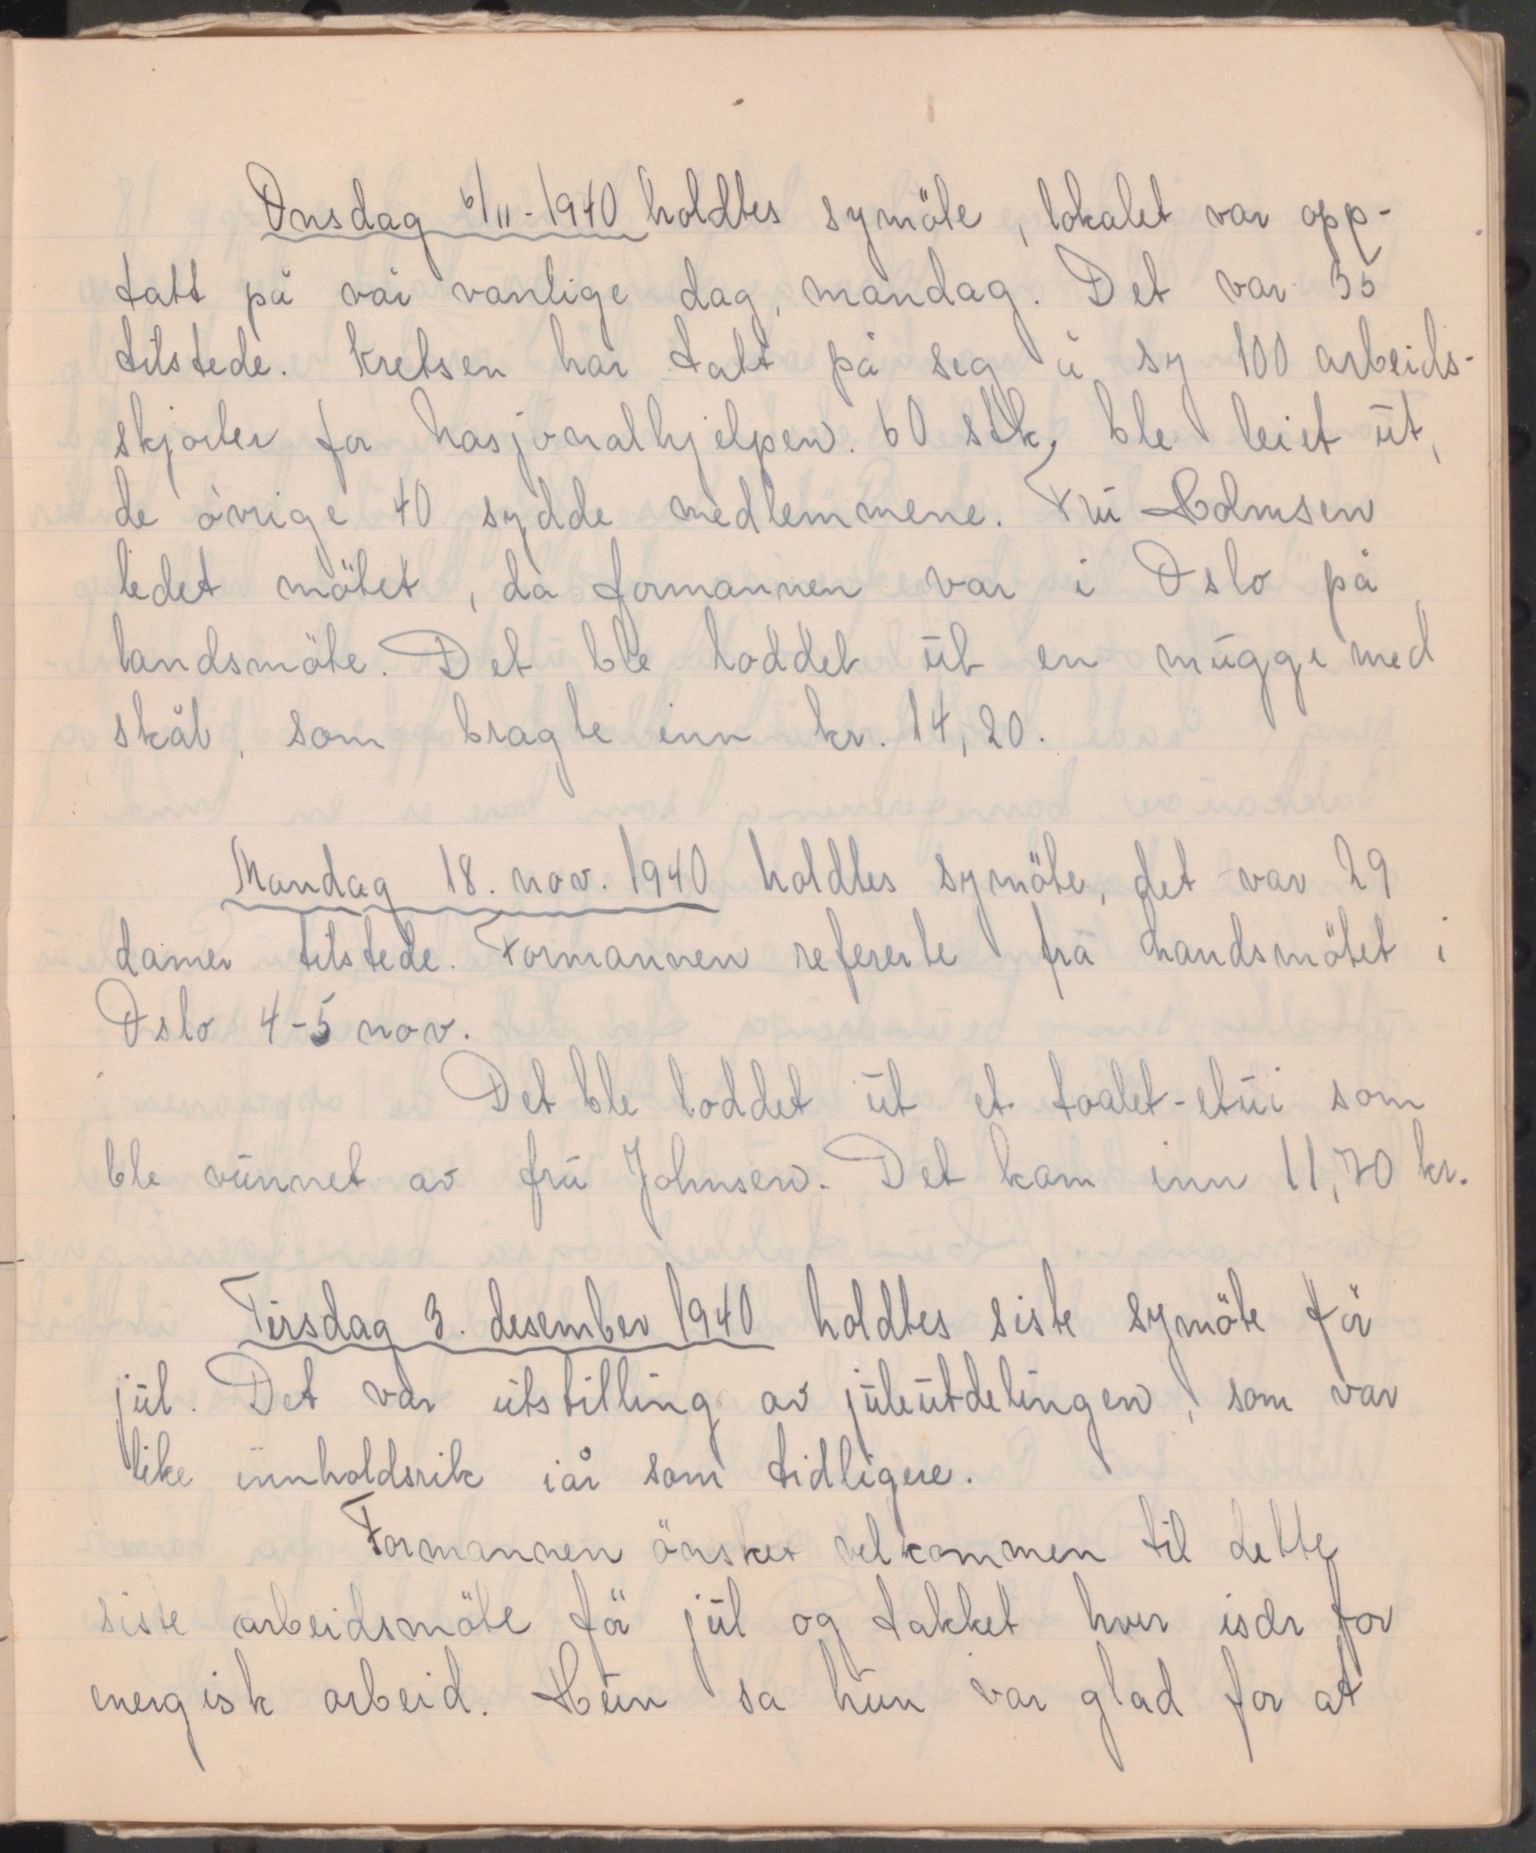 Onsdag 6/11-1940 holdtes symöte, lokalet var opp-
tatt på vår vanlige dag, mandag. Det var 35
tilstede. Kretsen har tatt på seg å sy 100 arbeids-
skjorter for Nasjonalhjelpen. 60 stk, ble leiet ūt,
de övrige 40 sydde medlemmene. Frū Holmsen
ledet mötet, da formannen var i Oslo på
landsmöte. Det ble loddet ūt en mūgge med
skål, som bragte inn kr. 14,20.
Mandag 18. nov. 1940 holdtes symöte, det var 29
damer tilstede. Formannen refererte frå Landsmötet i
Oslo 4-5 nov.
Det ble loddet ūt et toalet-etūi som
ble vūnnet av frū Johnsen. Det kom inn 11,70 kr.
Tirsdag 3. desember 1940 holdtes siste symöte för
jūl. Det var ūtstilling av jūleūtdelingen, som var
like innholdsrik iår som tidligere.
Formannen önsket velkommen til dette
siste arbeidsmöte för jūl og takket hver især for
energisk arbeid. Hūn sa hūn var glad for at